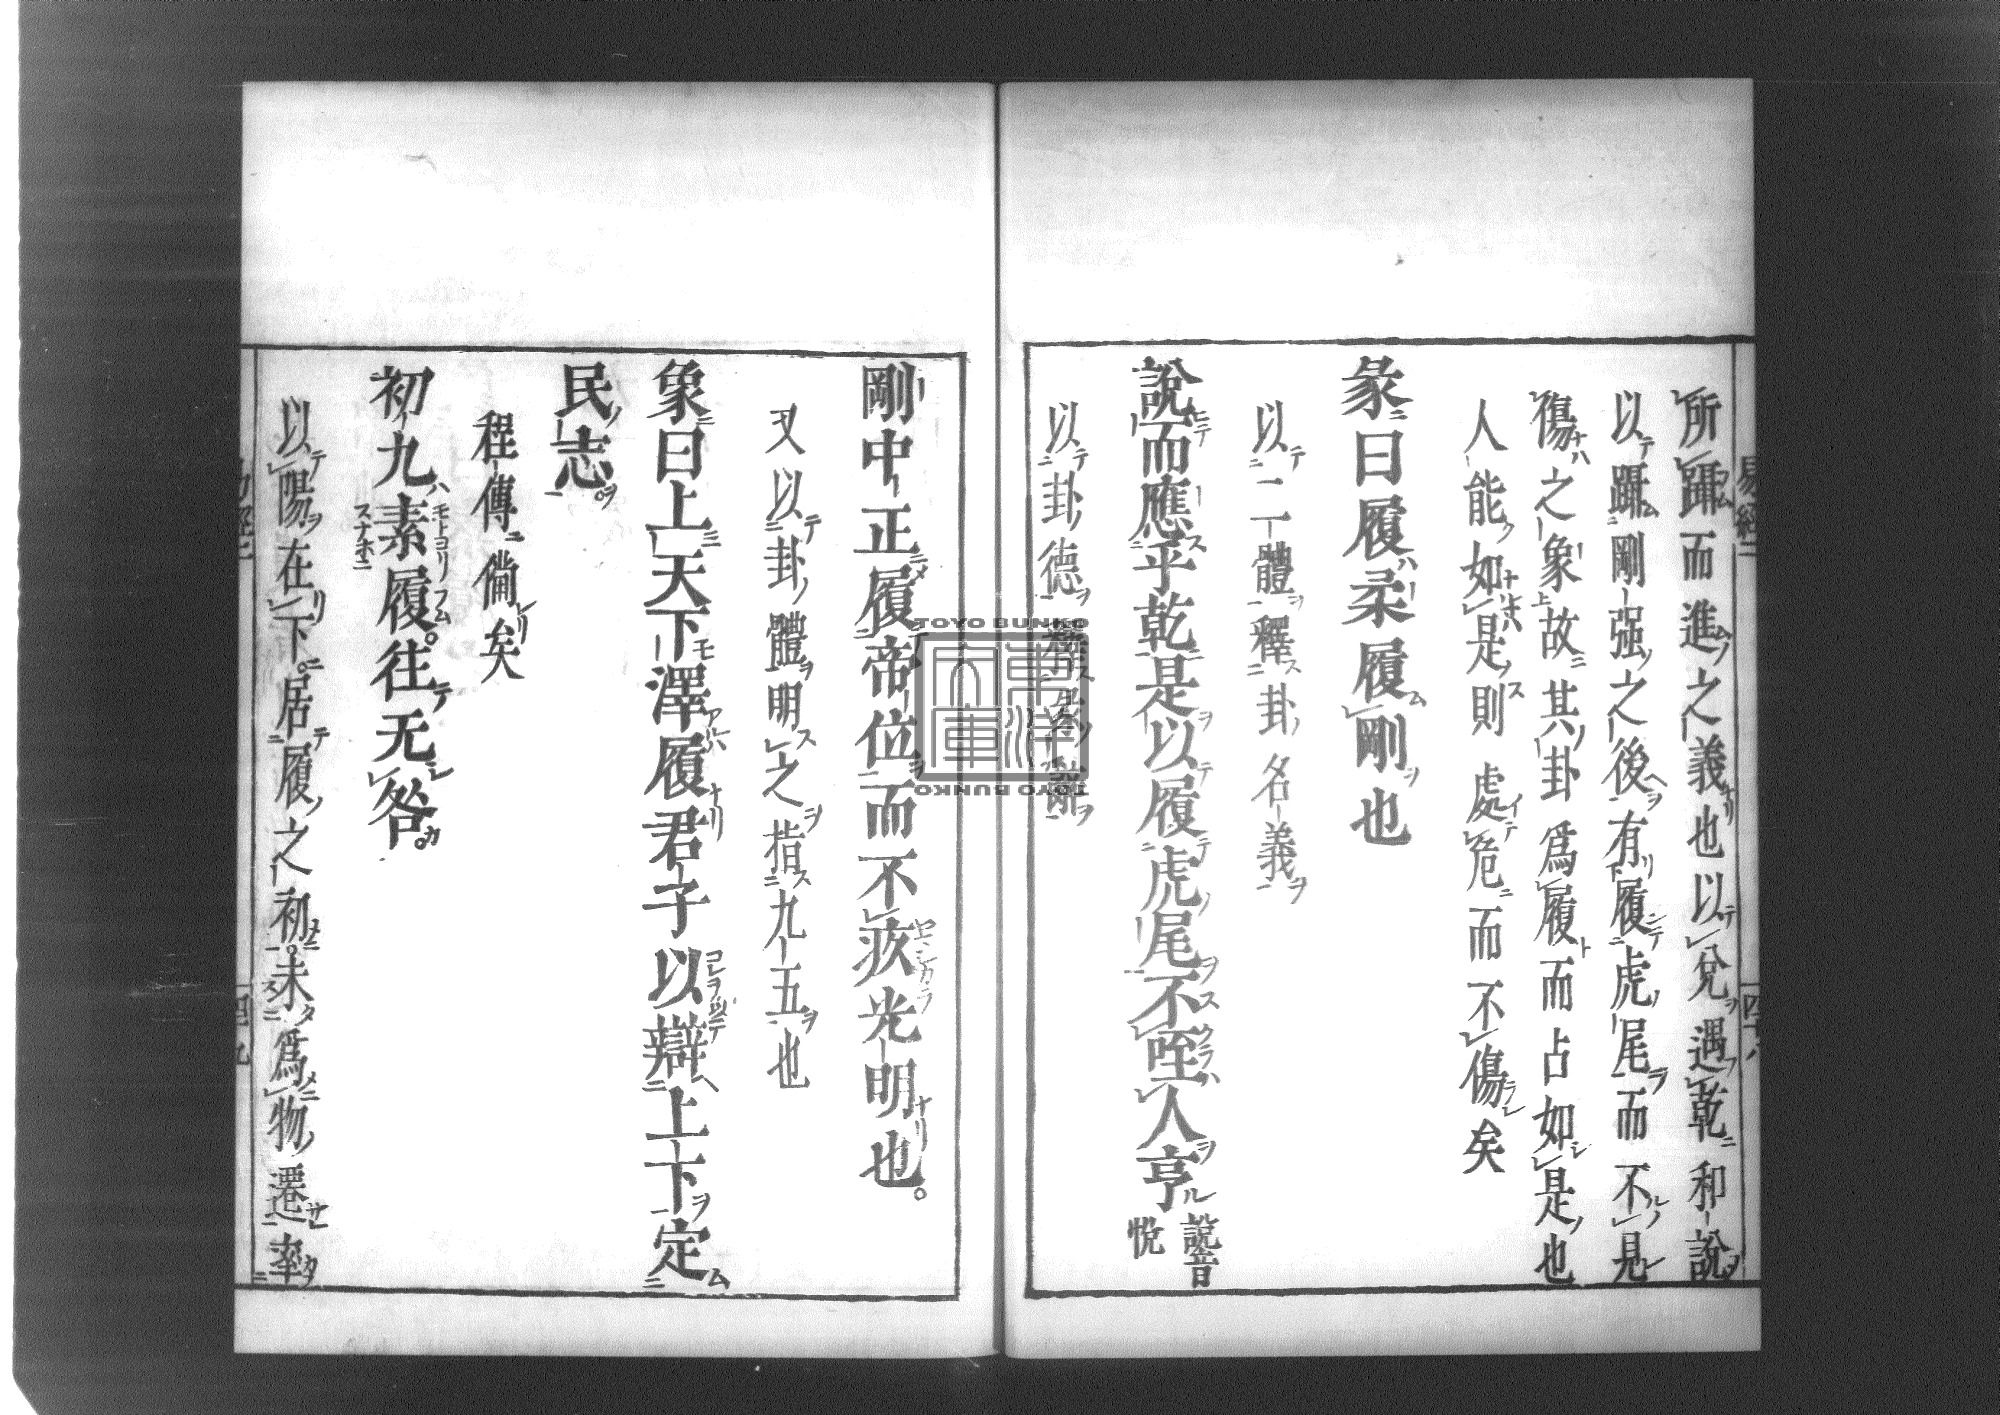 所躡而進之義也以兌遇乾和說
以躡剛强之後有履虎尾而不見
傷之象故其卦爲履而占如是也
人能如是則處危而不傷矣
彖曰履柔履剛也
以二體釋卦名義
說而應乎乾是以履虎尾不咥人亨 說音悅
以卦德釋彖辭
剛中正履帝位而不疚光明也。
又以卦體明之指九五也
象曰上天下澤履君子以辯上下定
民志。
程傳備矣
初九素履。往无咎。
以陽在下。居履之初。未爲物遷率
易經二
四十八
TOYO BUNKO
東洋文庫
TOYO BUNKO